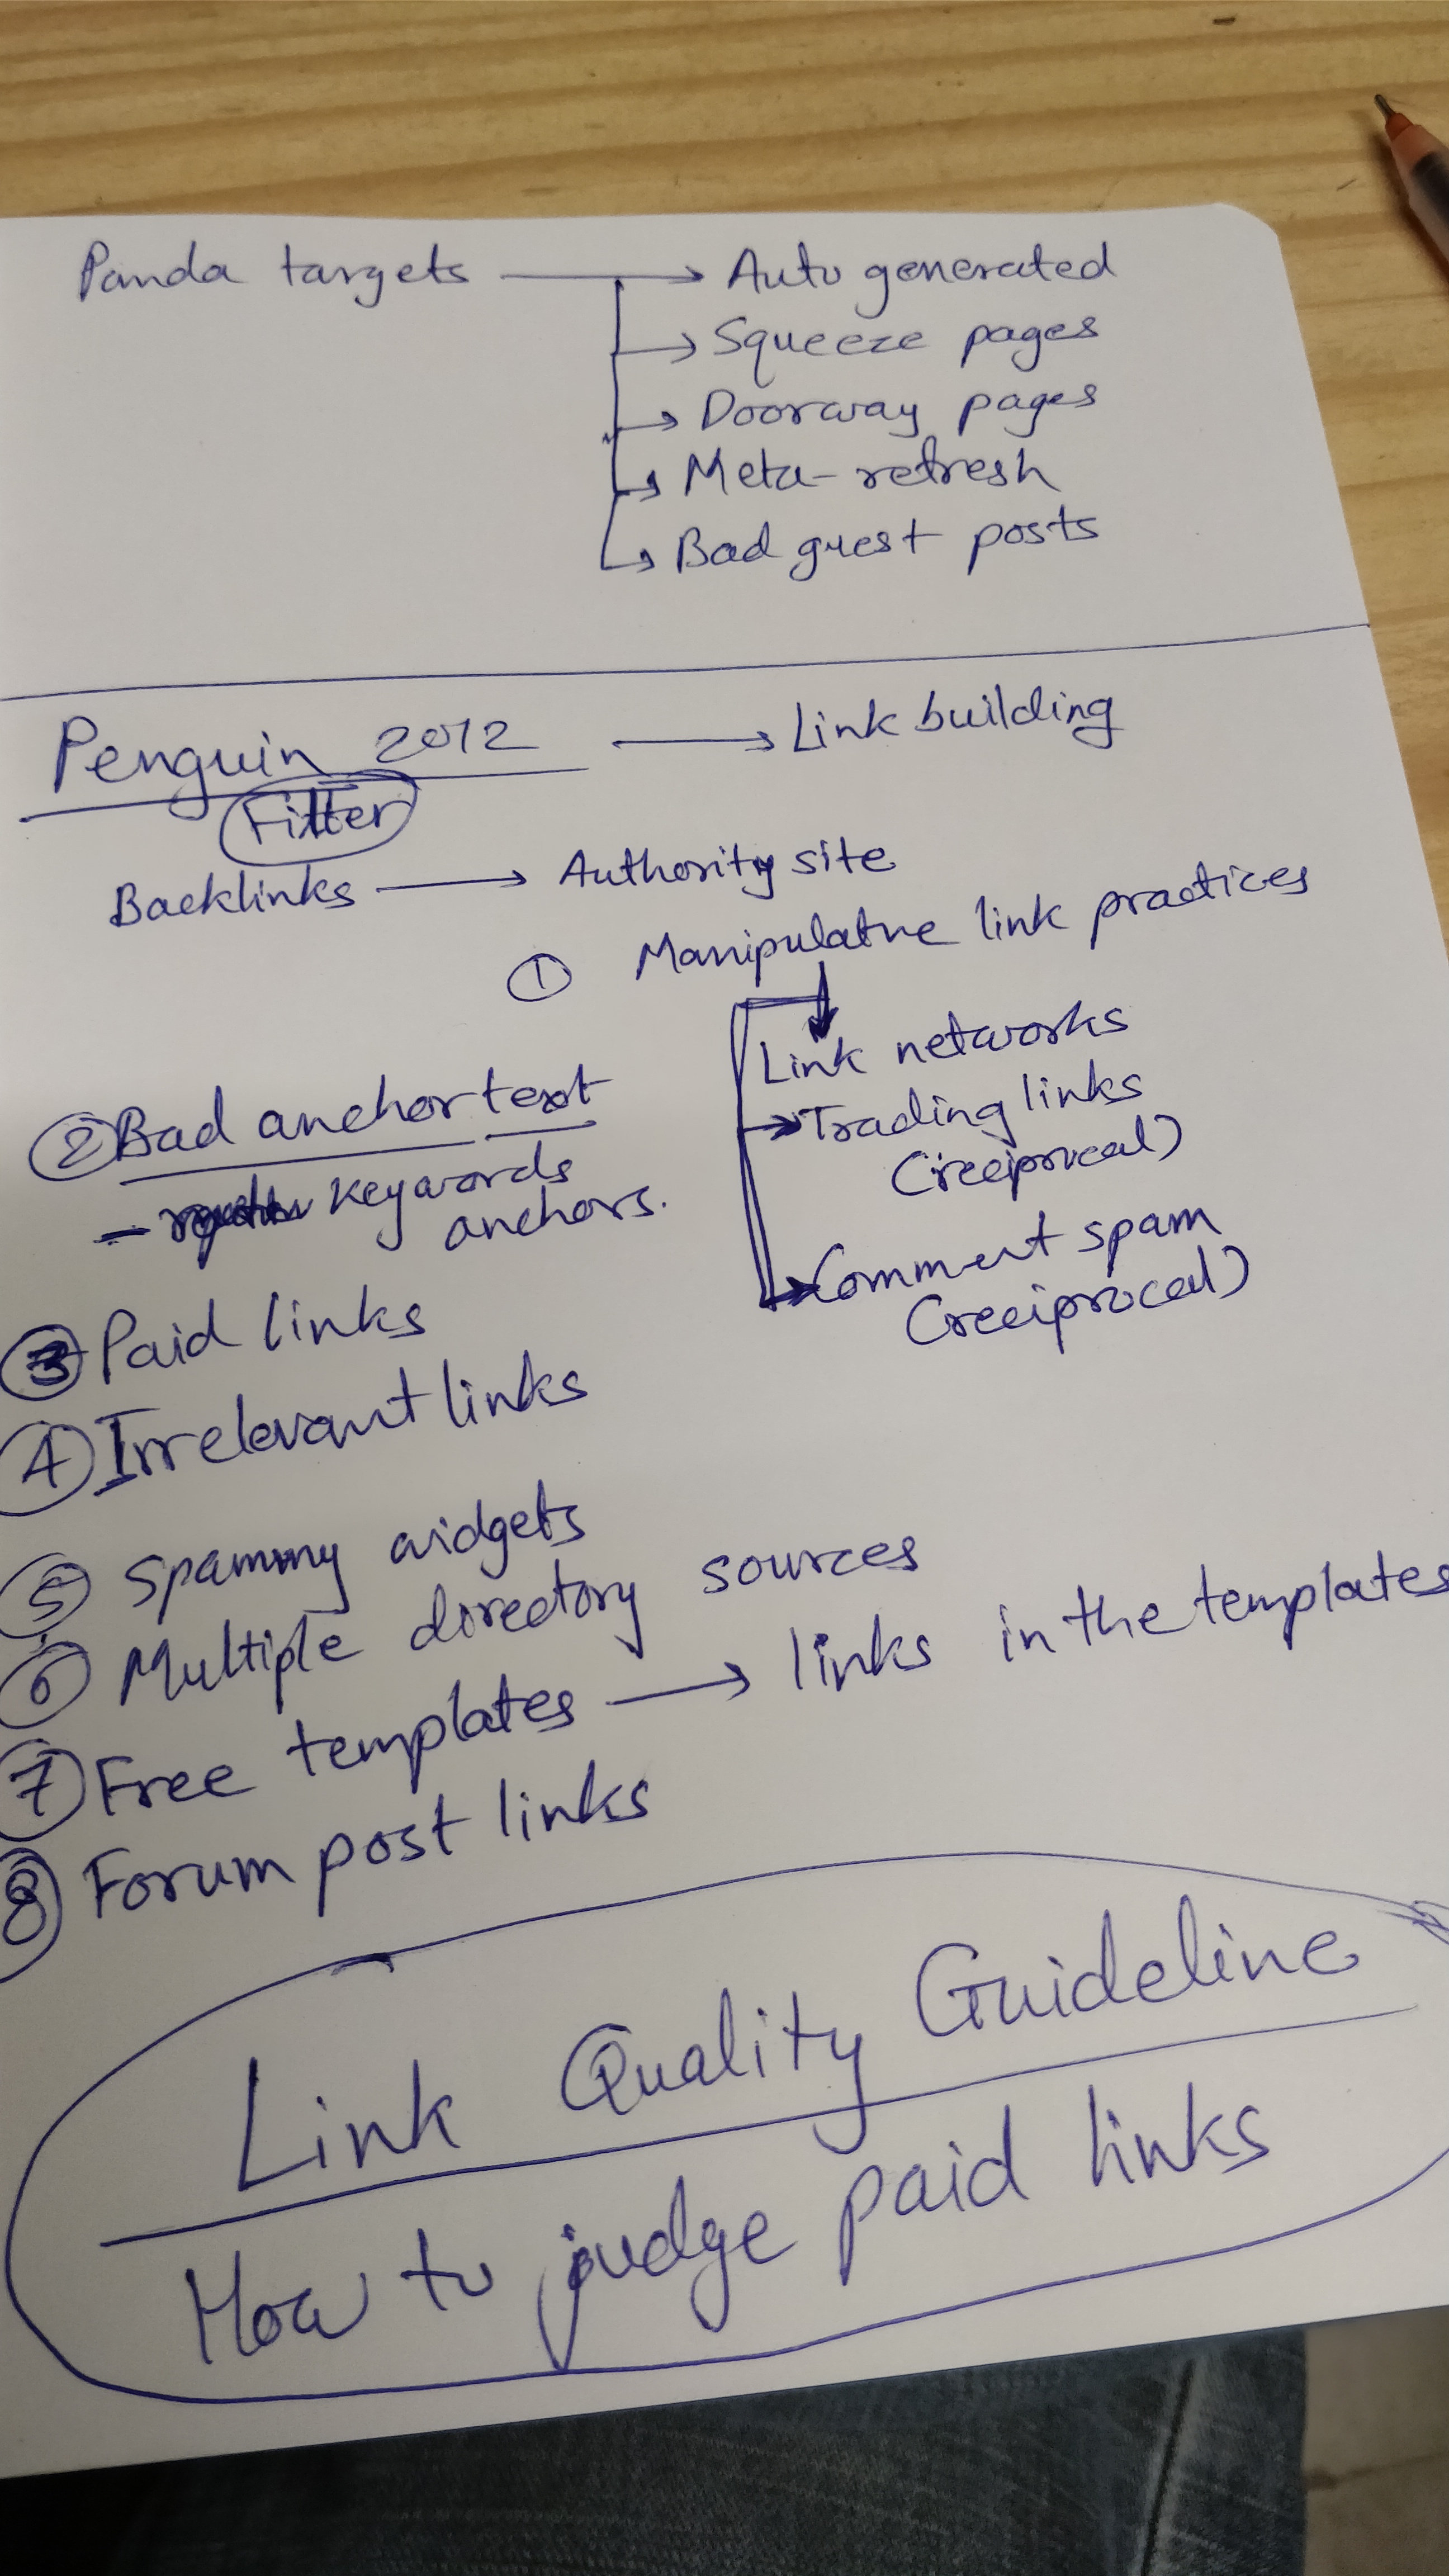 Panda targets → Auto generated
→ Squeeze pages
→ Doorway pages
→ Meta-refresh
→ Bad guest posts
Penguin 2012 → Link building
Filter
Backlinks → Authority site
① Manipulative link practices
Link networks
→ Trading links
(reciprocal)
→ Comment spam
(reciprocal)
② Bad anchor text
- keywords
anchors.
③ Paid links
④ Irrelevant links
⑤ Spammy widgets
⑥ Multiple directory sources
⑦ Free templates → links in the templates
⑧ Forum post links
Link Quality Guideline
How to judge paid links